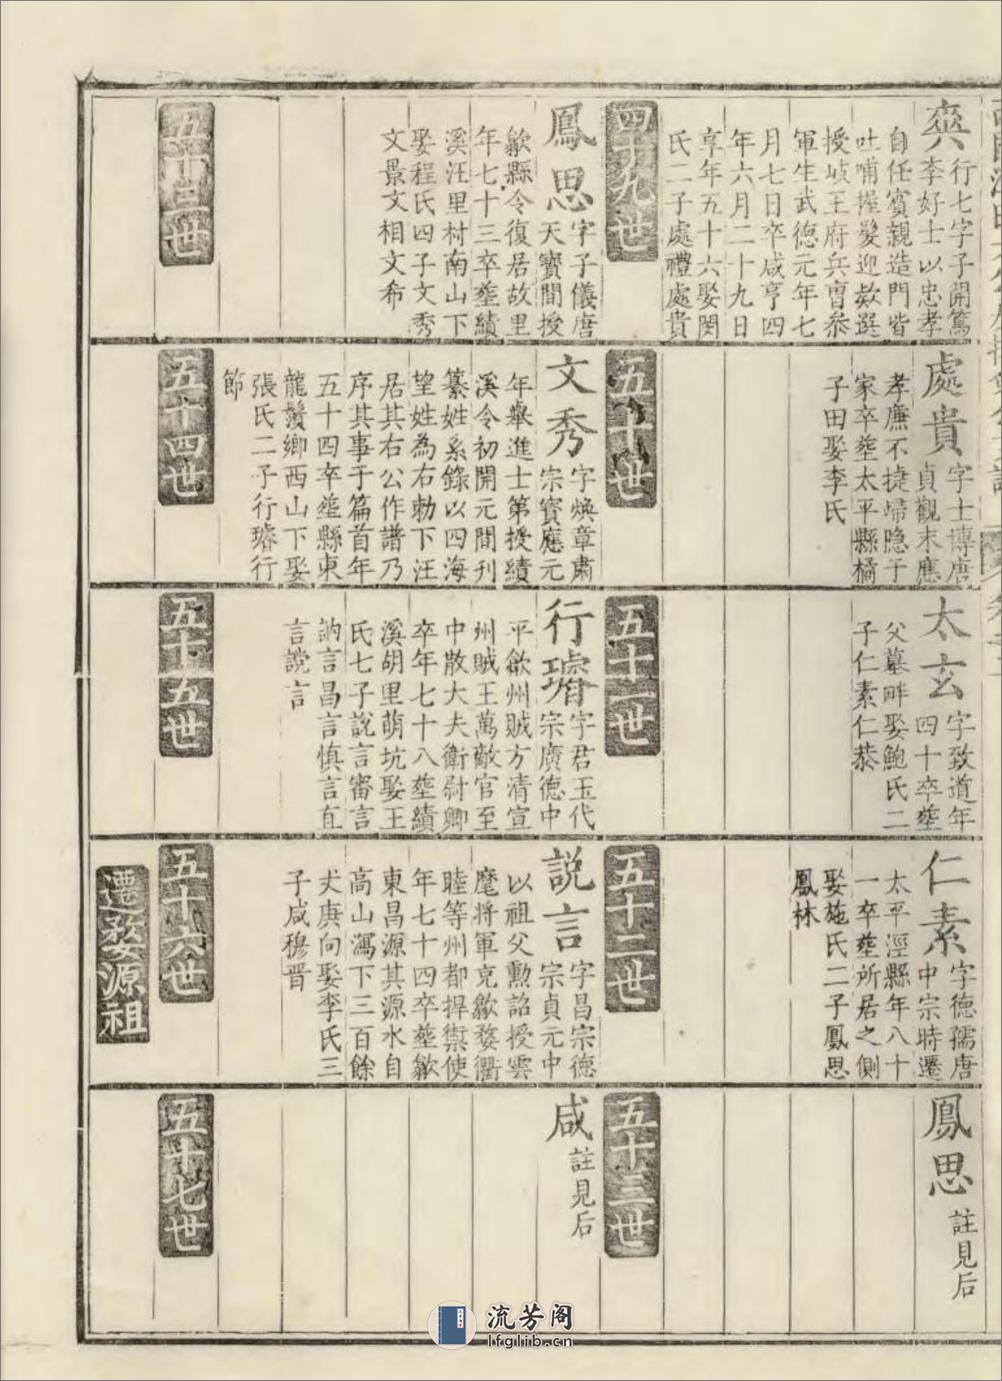 爽
行七字子開篤
李好士以忠孝
自任賓親造門皆
吐哺握髮迎欵選
授岐王府兵曹叅
軍生武德元年七
月七日卒咸亨四
年六月二十九日
享年五十六娶閔
氏二子處禮處貴
四十九世
處貴
字士博唐
貞觀末應
孝廉不捷歸隐于
家卒塟太平縣橘
子田娶李氏
五十世
太玄
字致道年
四十卒塟
父墓畔娶鮑氏二
子仁素仁恭
五十一世
仁素
字德孺唐
中宗時遷
太平涇縣年八十
一卒塟所居之側
娶施氏二子鳳思
鳳林
五十二世
鳳思
註見后
五十三世
鳳思
字子儀唐
天寳間授
歙縣令復居故里
年七十三卒塟績
溪汪里村南山下
娶程氏四子文秀
文景文相文希
五十三世
文秀
字煥章肅
宗寳應元
年舉進士第授績
溪令初開元間刋
纂姓系錄以四海
望姓為右勅下汪
居其右公作譜乃
序其事于篇首年
五十四卒塟縣東
龍鬚鄉西山下娶
張氏二子行璿行
節
五十四世
行璿
字君玉代
宗廣德中
平歙州賊方清宣
州賊王萬敵官至
中散大夫衛尉卿
卒年七十八塟績
溪胡里萌坑娶王
氏七子説言審言
訥言昌言慎言直
言讜言
五十五世
説言
字昌宗德
宗貞元中
以祖父勲詔授雲
麾將軍克歙婺衢
睦等州都捍禦使
年七十四卒塟歙
東昌源其源水自
高山瀉下三百餘
丈庚向娶李氏三
子咸穆晋
五十六世
遷婺源祖
咸
註見后
五十七世
流芳阁
lfglib.cn